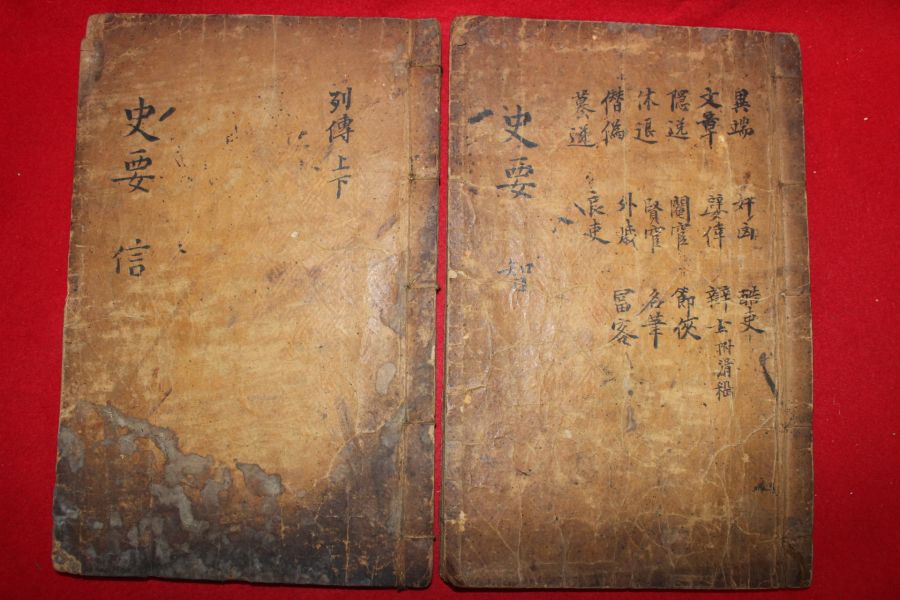 異端 奸凶 酷吏
文章 嬖倖 辯士附滑稽
隱逸 閹宦 節俠
休退 賢宦 名筆
僭僞 外戚 富客
良吏
史要 智
列傳 上下
史要 信